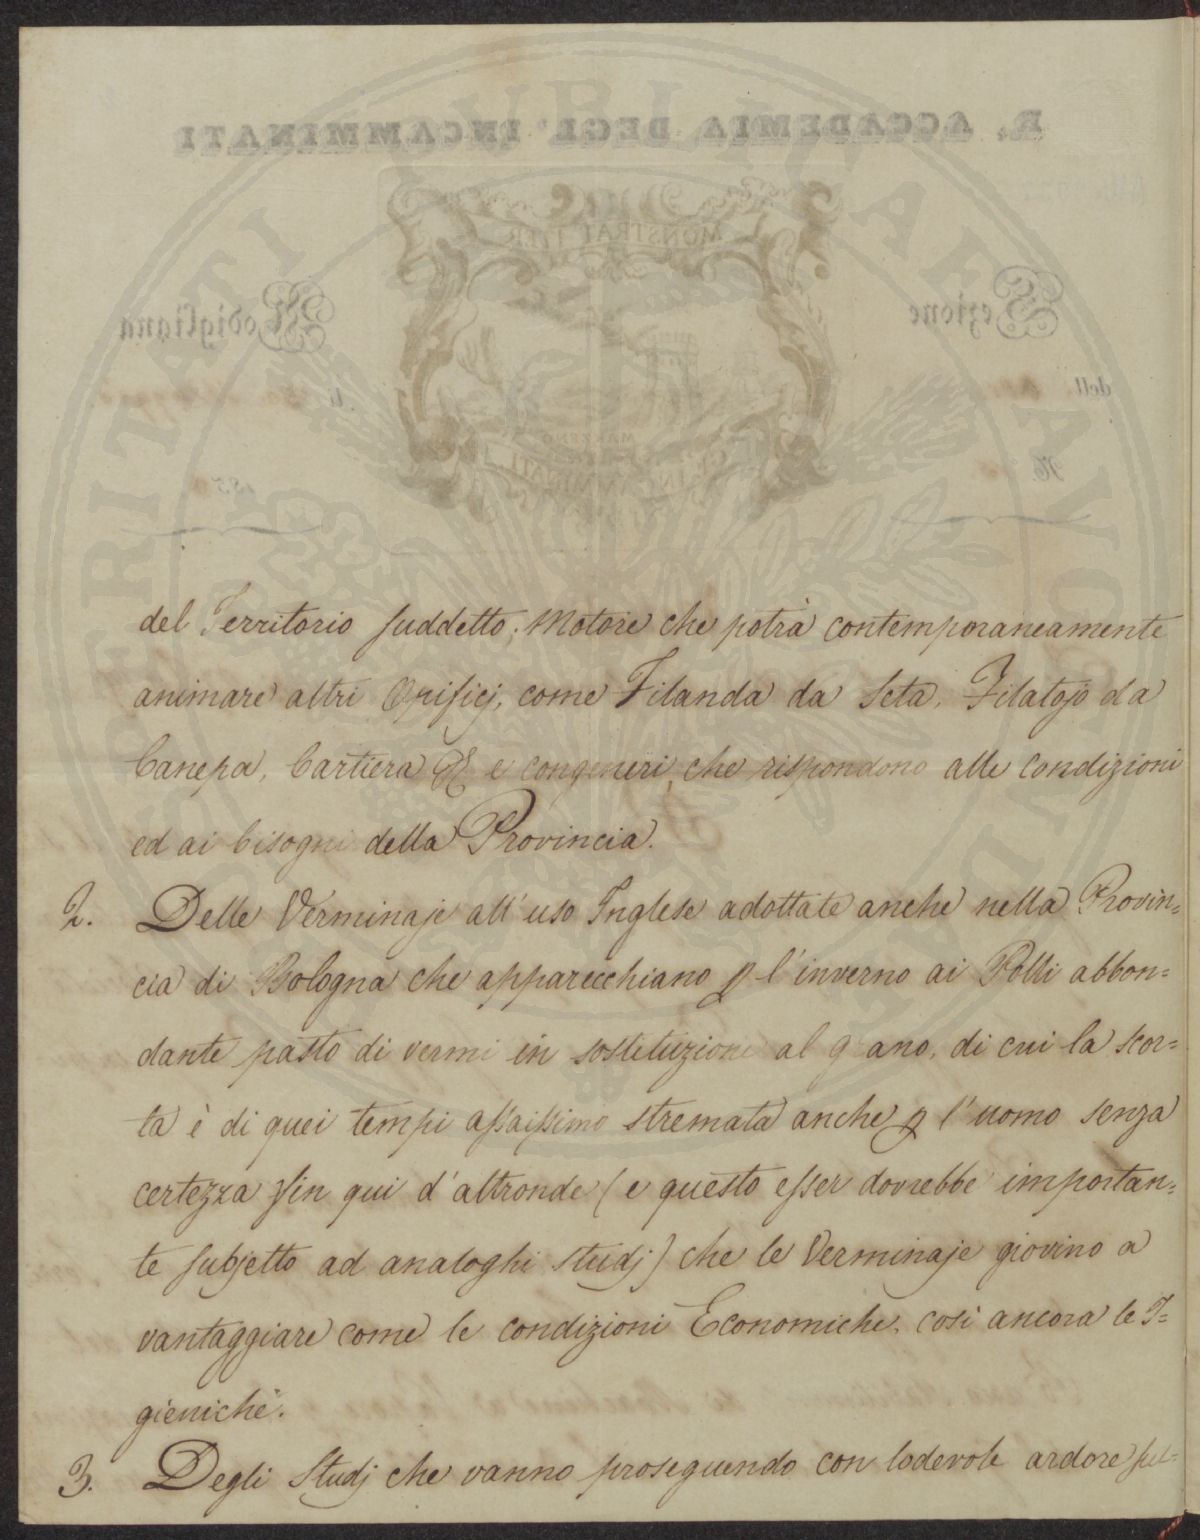 del Territorio suddetto; Motore che potrà contemporaneamente
animare altri Opificj, come Filanda da Seta, Filatojo da
Canepa, Cartiera &c e congeneri, che rispondono alle condizioni
ed ai bisogni della Provincia.
2. Delle Verminaje all'uso Inglese adottate anche nella Provin=
cia di Bologna che apparecchiano p l'inverno ai Polli abbon=
dante pasto di vermi in sostituzione al grano, di cui la scor=
ta è di quei tempi assaissimo stremata anche p l'uomo senza
certezza fin qui d'altronde (e questo esser dovrebbe importan=
te subjetto ad analoghi studj) che le Verminaje giovino a
vantaggiare come le condizioni Economiche, così ancora le I=
gieniche.
3. Degli Studj che vanno proseguendo con lodevole ardore sul=